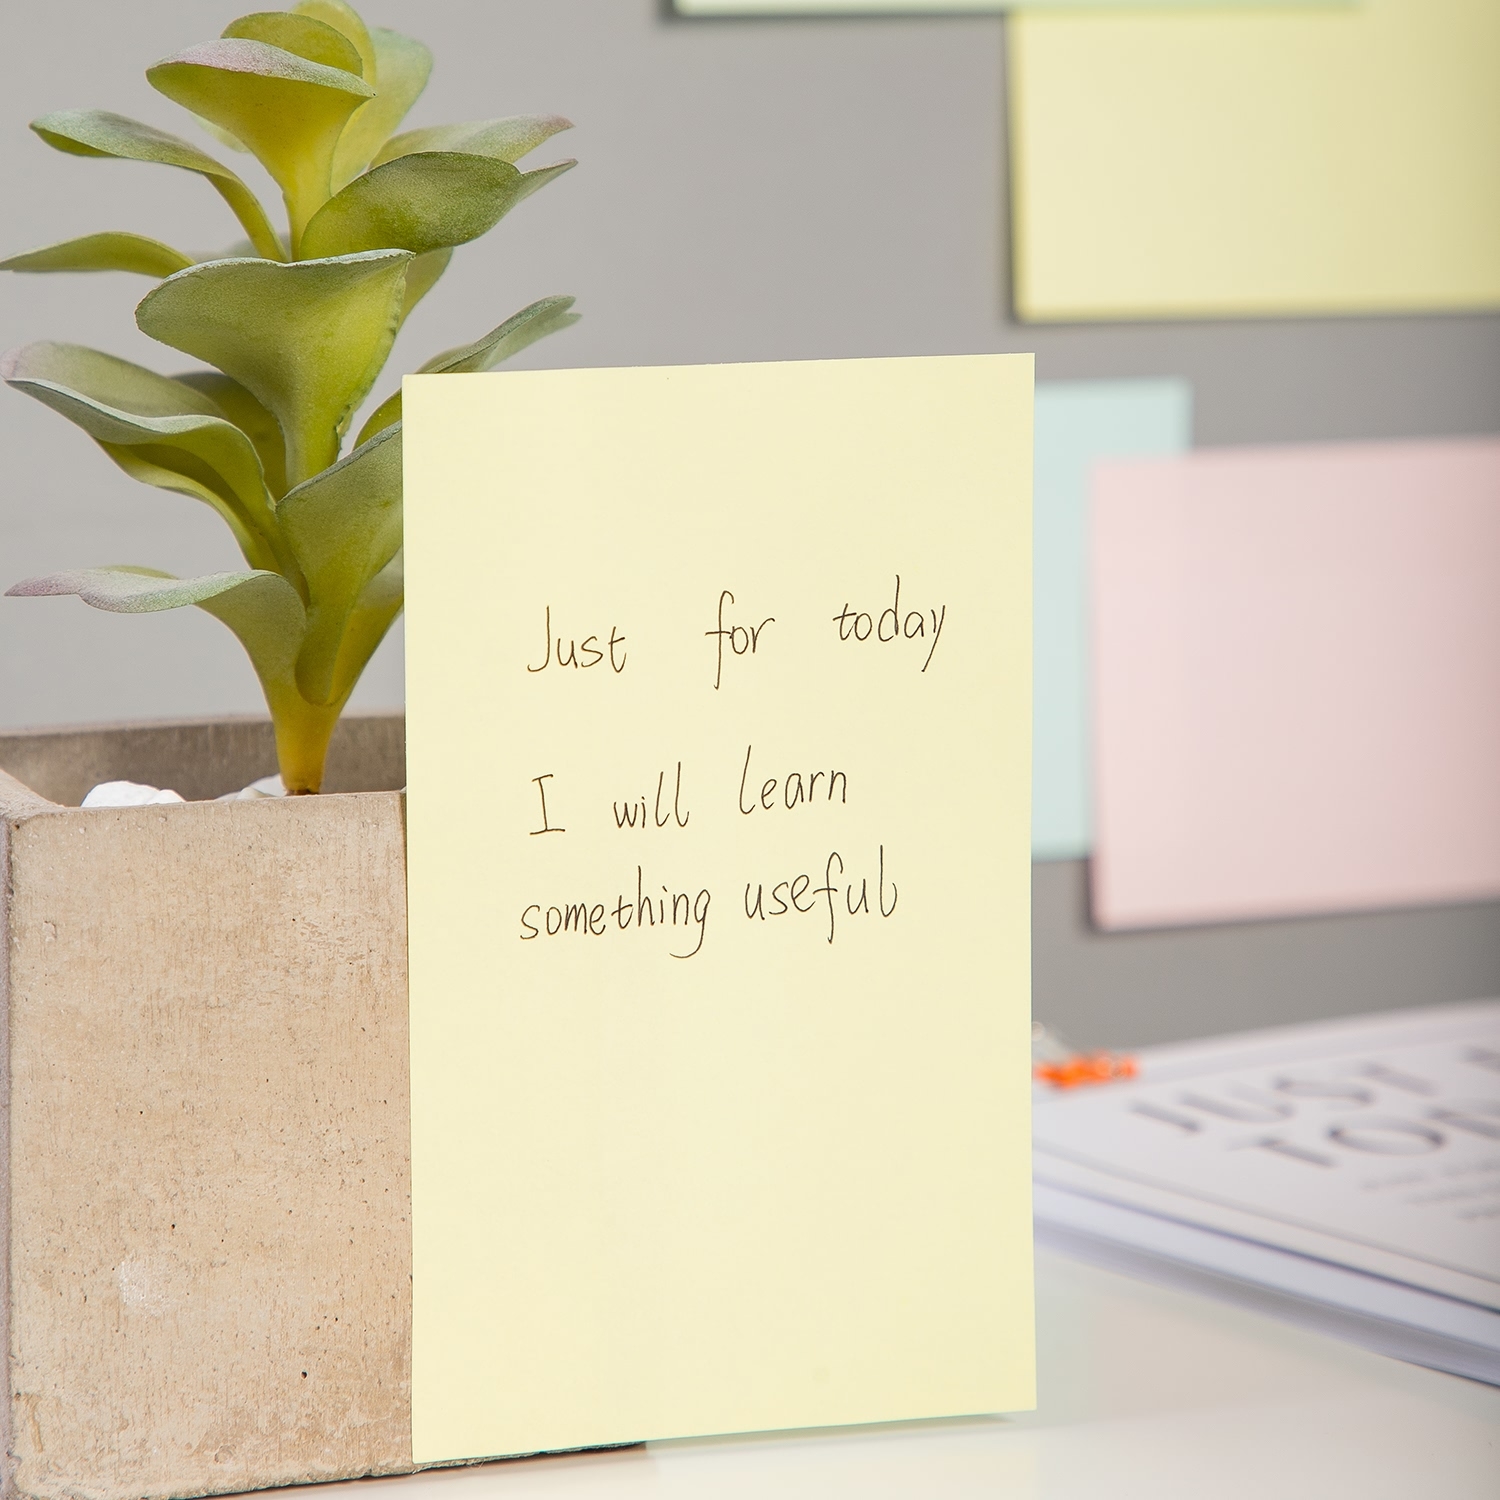 Just for today
I will learn
something useful
JUST
TOD